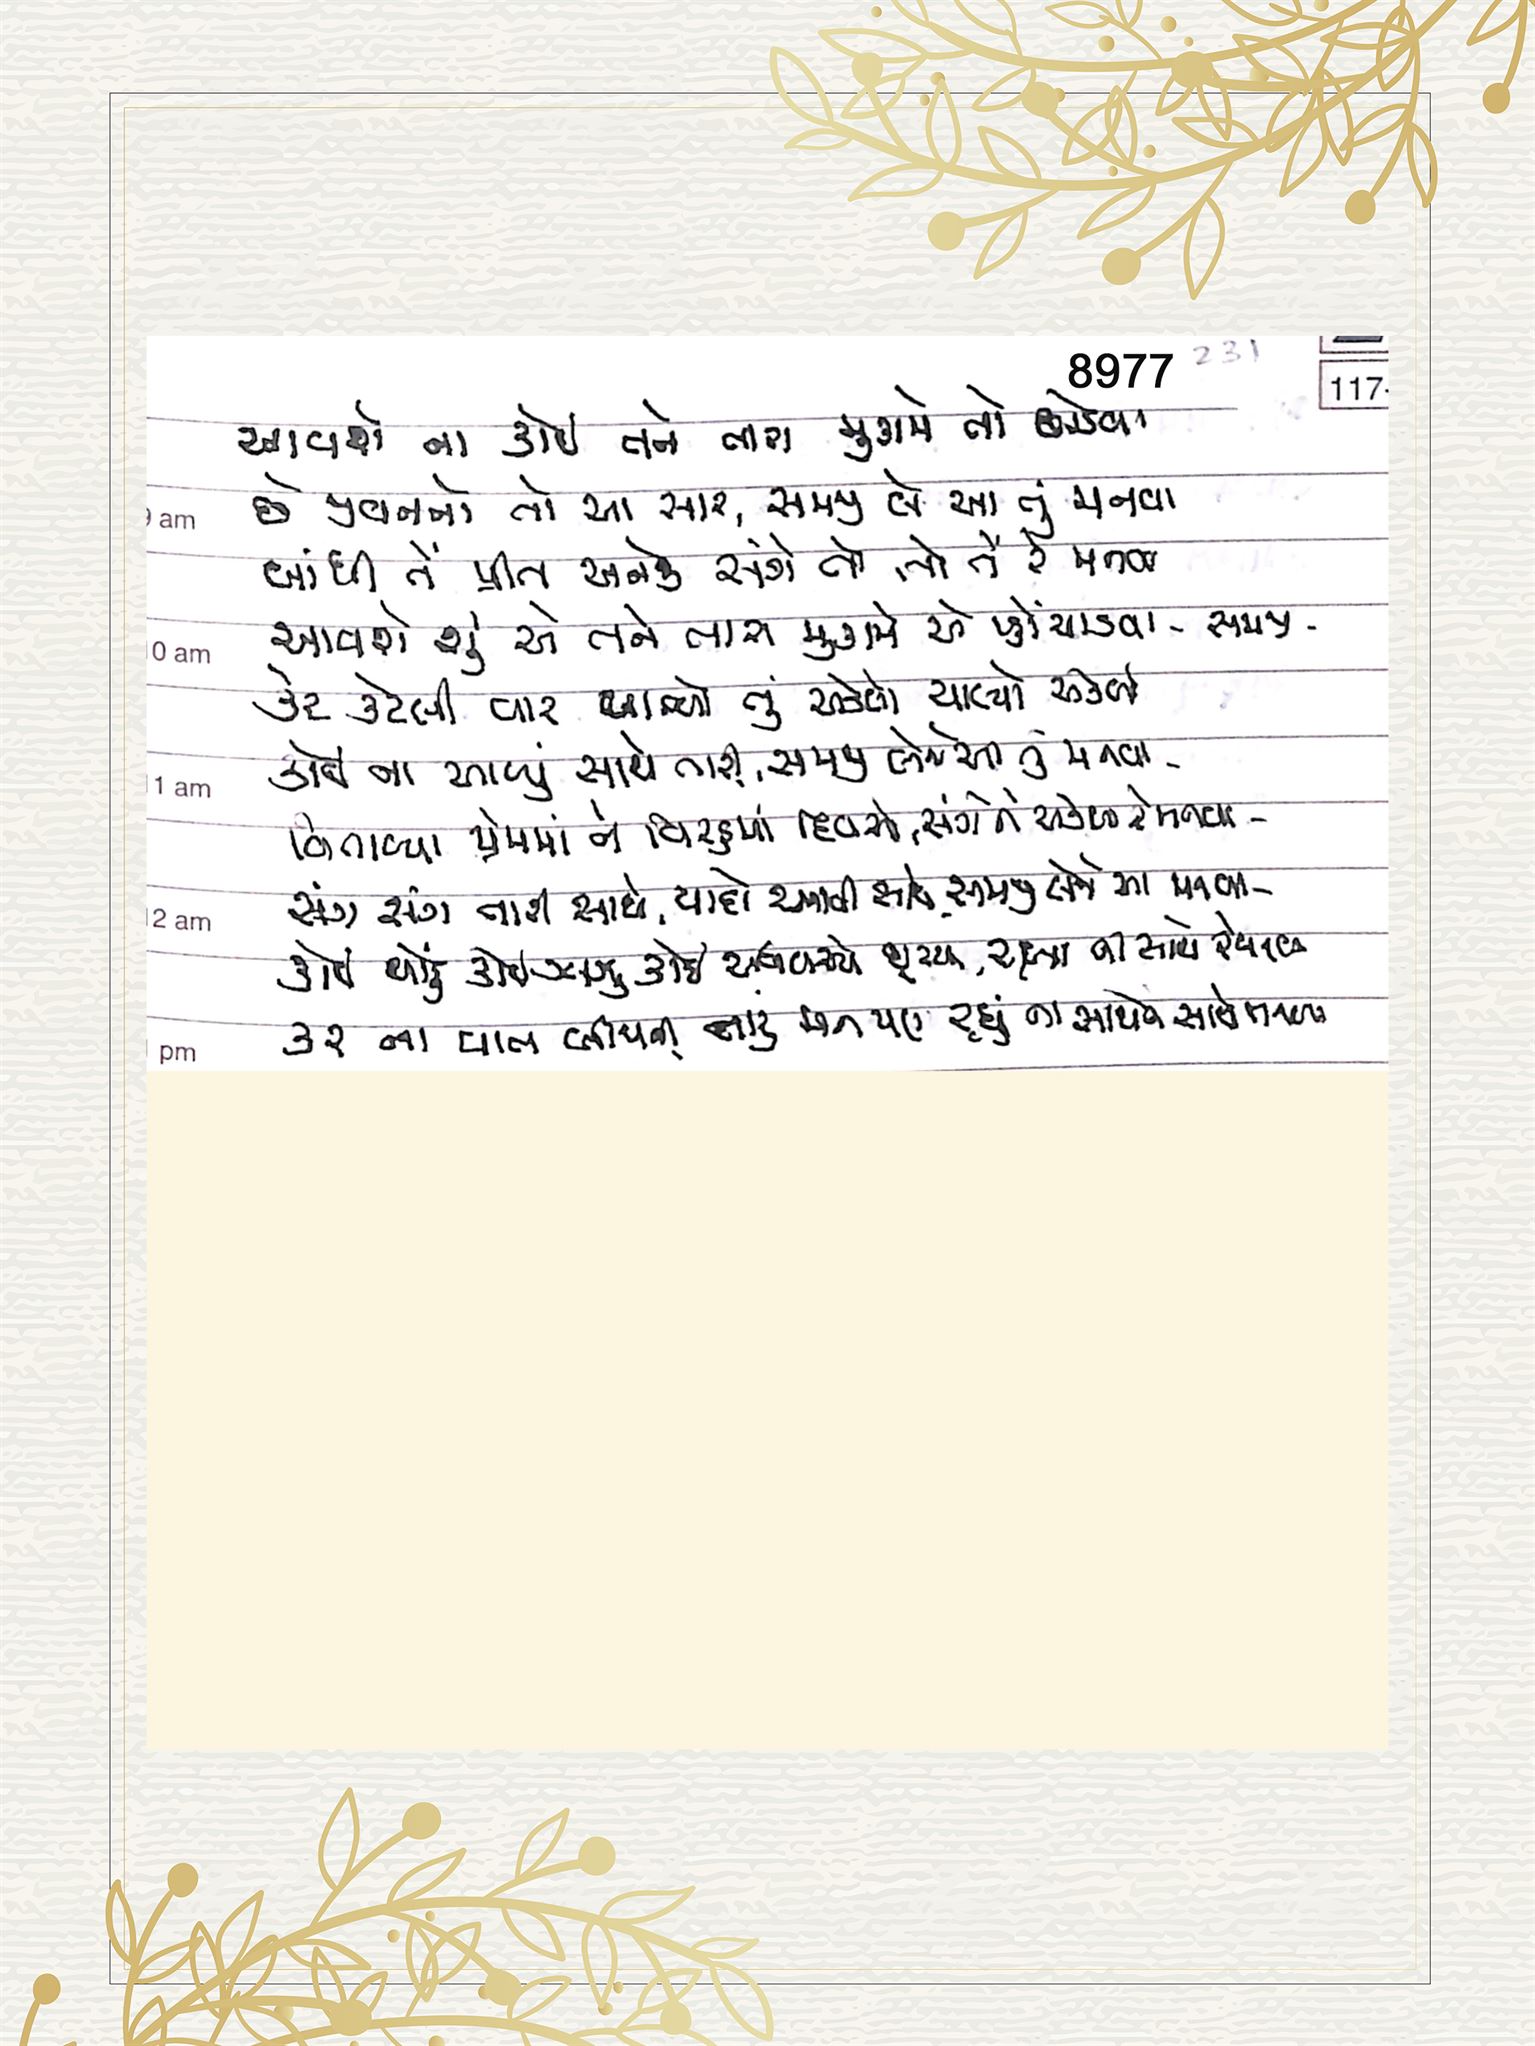 8977 231
117-
આવશે ના કોઈ તને તારા મુકામે તો છોડવા
9 am છે જીવનનો તો આ સાર, સમજી લે આ તું મનવા
બાંધી તેં પ્રીત અનેક સંગે તો, તો તેં રે મનવા
10 am આવશે શું એ તને તારા મુકામે એ પ્હોંચાડવા - સમજી -
કેટ કેટલી વાર આવ્યો તું એકલો ચાલ્યો એકલો
11 am કોઈ ના આવ્યું સાથે તારી, સમજી લેજે આ તું મનવા -
વિતાવ્યા પ્રેમમાં ને વિરહમાં દિવસો, સંગે ને રે મનવા -
12 am સંગ સંગ તારી સાથે, યાદો આવી સાથે, સમજી લેજે આ મનવા -
કોઈ થોડું કોઈ કોઈ, ના સાથે રે મનવા
pm કર ના વાત જીવનની તારું મન પણ રહ્યું ના સાથે ને સાથે મનવા